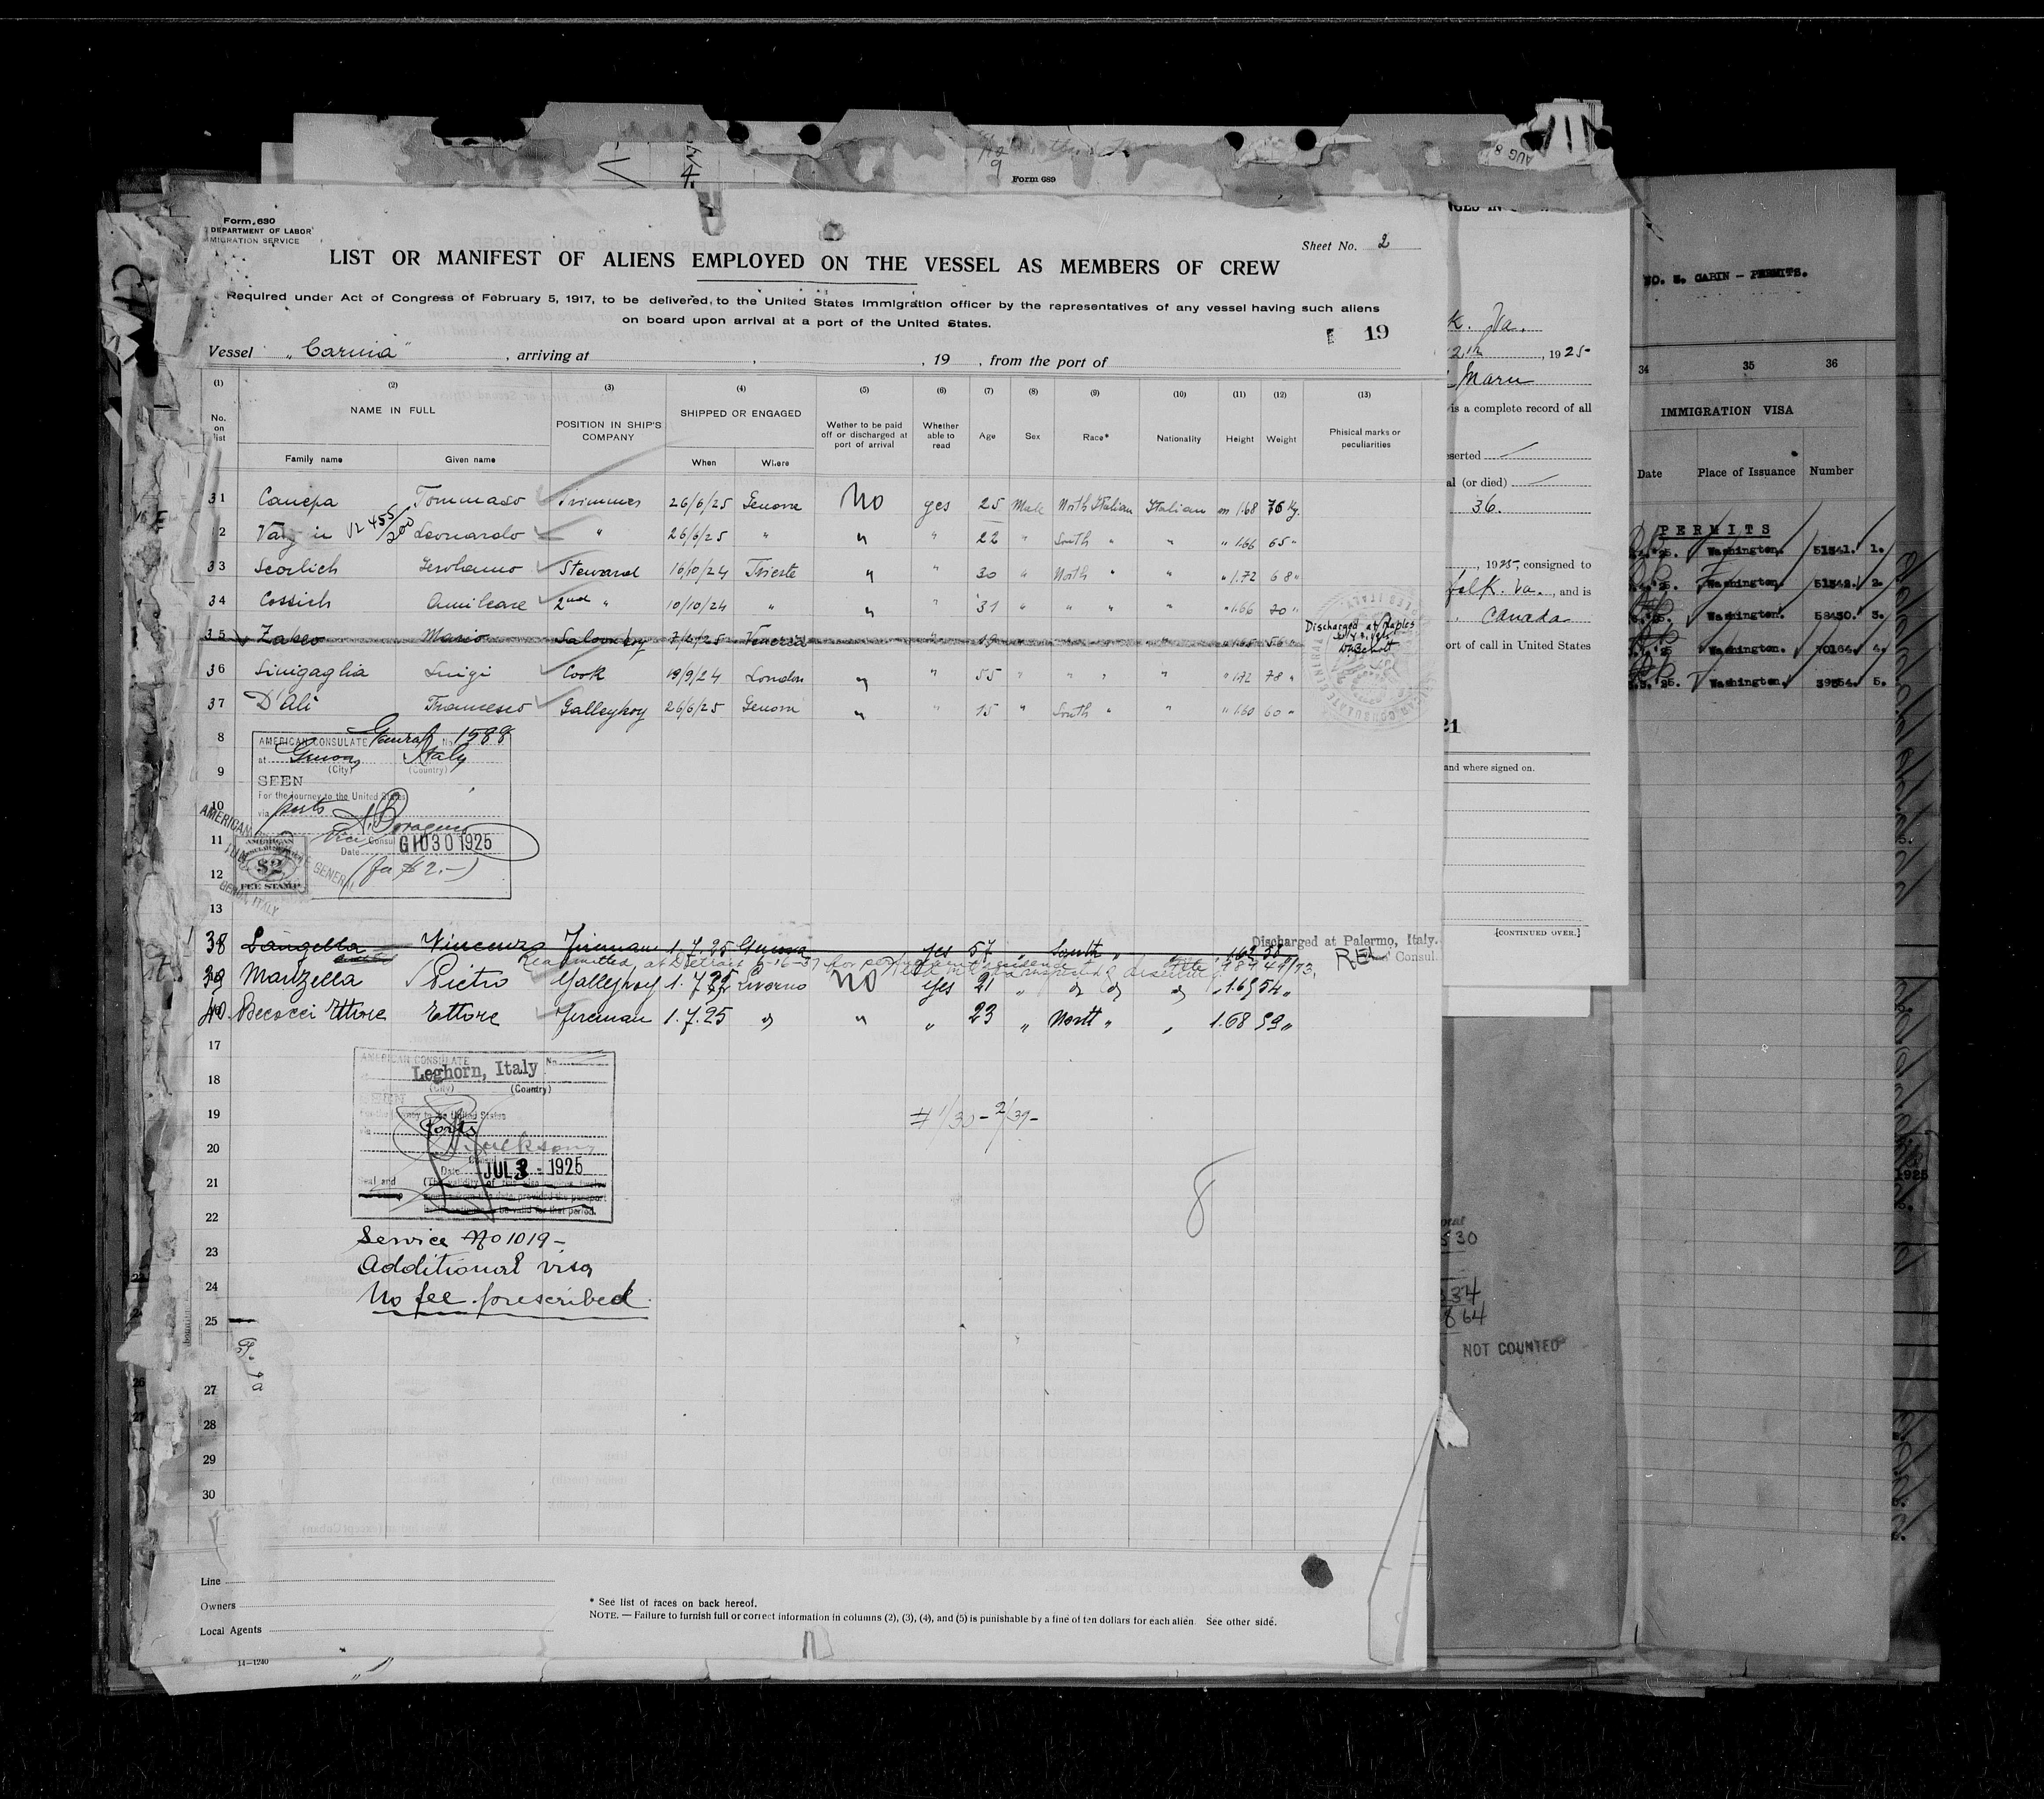 Form 689
AUG 8
Form 630
DEPARTMENT OF LABOR
MIGRATION SERVICE
Sheet No. 2
LIST OR MANIFEST OF ALIENS EMPLOYED ON THE VESSEL AS MEMBERS OF CREW
Required under Act of Congress of February 5, 1917, to be delivered, to the United States Immigration officer by the representatives of any vessel having such aliens
on board upon arrival at a port of the United States.
19
Vessel „Carnia" , arriving at , 19 , from the port of
(1) (2) (3) (4) (5) (6) (7) (8) (9) (10) (11) (12) (13)
No. on list NAME IN FULL POSITION IN SHIP'S COMPANY SHIPPED OR ENGAGED Wether to be paid off or discharged at port of arrival Whether able to read Age Sex Race* Nationality Height Weight Phisical marks or peculiarities
Family name Given name When Where
31 Canepa Tommaso Trimmer 26/6/25 Genova No yes 25 Male North Italian Italian m 1.68 76 Kg.
2 Leonardo " 26/6/25 " " " 22 " South " " " 1.66 65 "
33 Steward 16/10/24 Trieste " " 30 " North " " " 1.72 68 "
34 Cossich Amilcare 2nd " 10/10/24 " " " 31 " " " " " 1.66 70 "
35 Mario Venezia " " " " 1.65 56 " Discharged at Naples
36 Sinigaglia Luigi Cook 19/9/24 London " " 55 " " " " " 1.72 78 "
37 D'Ali Francesco Galleyboy 26/6/25 Genova " " 15 " South " " " 1.60 60 "
8
AMERICAN CONSULATE General No. 1588
at Genoa Italy
(City) (Country)
9
SEEN
For the journey to the United States
10
via ports
11
Vice Consul
Date GIU 30 1925
AMERICAN
$2
FEE STAMP
12
(fee $2.-)
GENOA, ITALY
13
38 Langella Vincenzo Fireman 1.7.25 Genova yes 57 " South " 1.62 58 Discharged at Palermo, Italy.
Consul
Readmitted at Detroit 6-16-37 for permanent residence
39 Marzella Pietro Galleyboy 1.7.25 Livorno No yes 21 " " " " " 1.69 54 "
40. Becocci Ettore Ettore Fireman 1.7.25 " " " 23 " North " " 1.68 59 "
17
AMERICAN CONSULATE No.
Leghorn, Italy
(City) (Country)
18
SEEN
For the journey to the United States
19
# 1/30 - 2/39 -
Ports
20
Jackson
Consul
Date JUL 3 - 1925
21
Seal and (The validity of this visa expires twelve
months from this date, provided the passport
itself continues to be valid for that period.
8
22
Service No 1019 -
23
Additional visa
24
No fee prescribed
25
27
28
29
30
Line
Owners
Local Agents
* See list of races on back hereof.
NOTE. — Failure to furnish full or correct information in columns (2), (3), (4), and (5) is punishable by a fine of ten dollars for each alien. See other side.
14—1240
K. Va.
2th , 1925-
Maru
is a complete record of all
eserted
al (or died)
36.
, 1925, consigned to
folk. Va. , and is
Canada
ort of call in United States
21
and where signed on.
[CONTINUED OVER.]
530
334
864
NOT COUNTED
NO. 5. CABIN — PERMITS.
34 35 36
IMMIGRATION VISA
Date Place of Issuance Number
PERMITS
25. Washington. 51341. 1.
25. Washington. 51342. 2.
25. Washington. 58430. 3.
25 Washington. 70164. 4.
25. Washington. 39554. 5.
1925